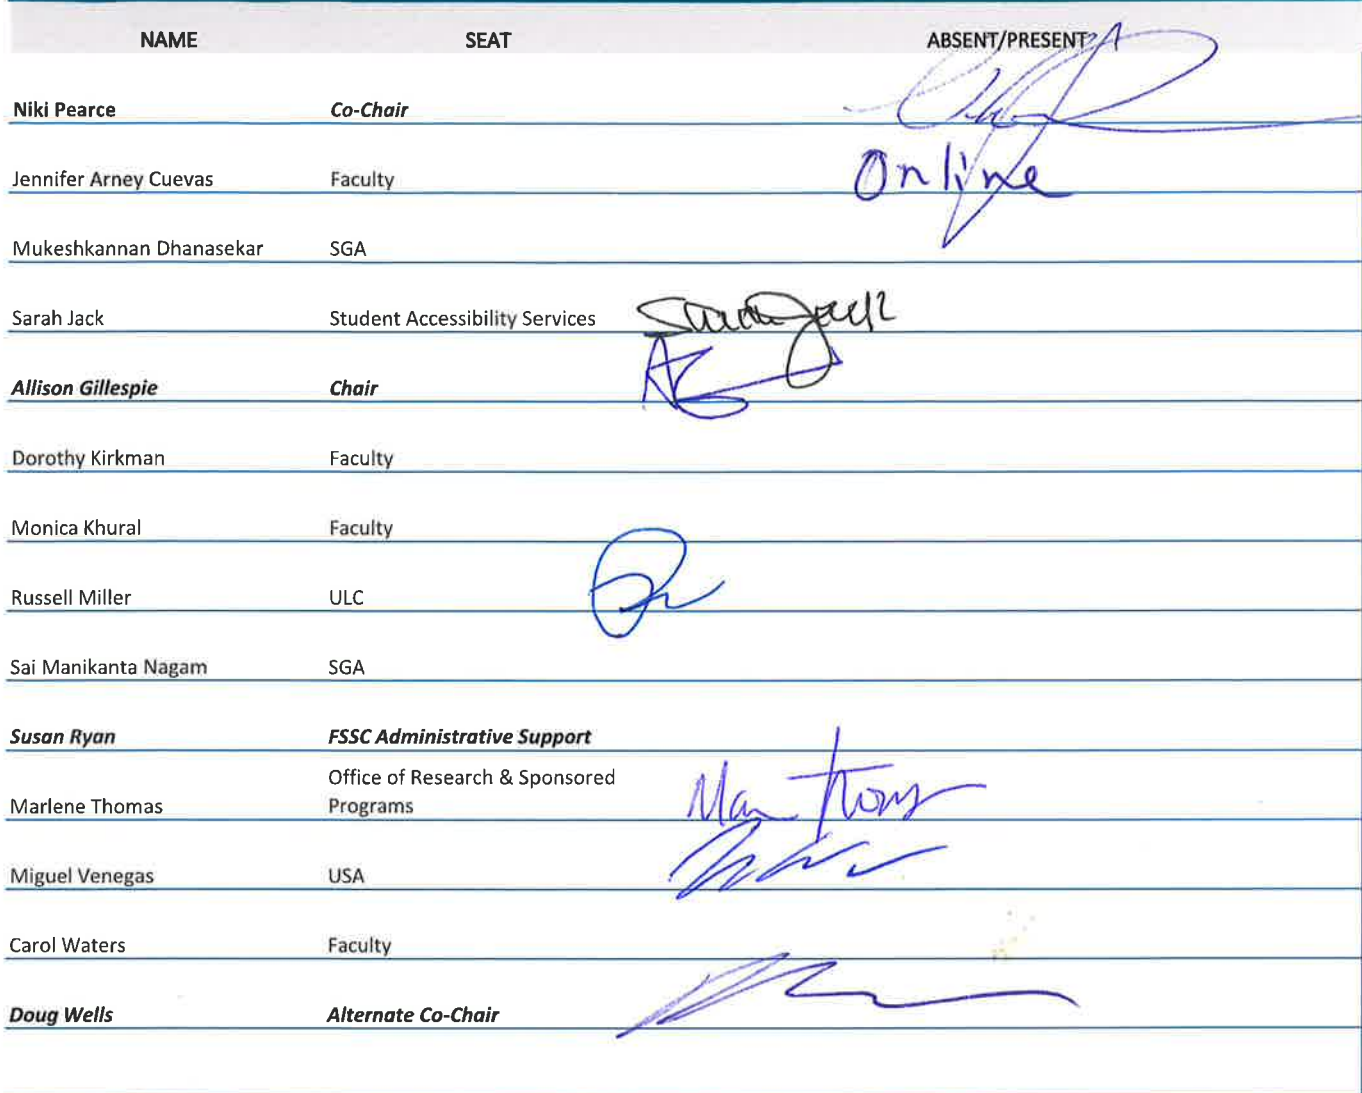 NAME SEAT ABSENT/PRESENT
Niki Pearce Co-Chair
Jennifer Arney Cuevas Faculty Online
Mukeshkannan Dhanasekar SGA
Sarah Jack Student Accessibility Services Sarah Jack
Allison Gillespie Chair AG
Dorothy Kirkman Faculty
Monica Khural Faculty
Russell Miller ULC
Sai Manikanta Nagam SGA
Susan Ryan FSSC Administrative Support
Office of Research & Sponsored
Marlene Thomas Programs
Miguel Venegas USA
Carol Waters Faculty
Doug Wells Alternate Co-Chair